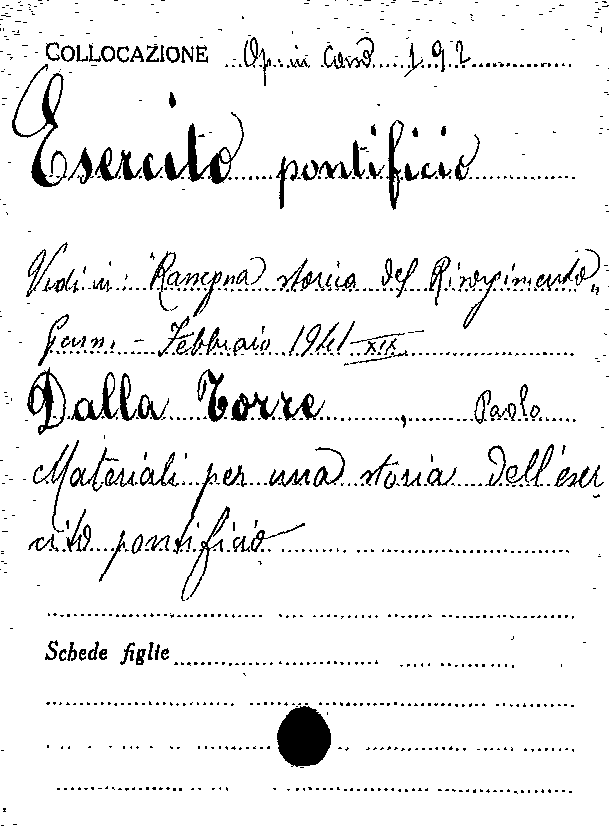 COLLOCAZIONE Op. in Cons 192
Esercito pontificio
Vedi in: "Rassegna storica del Risorgimento"
Genn. - Febbraio 1941 XIX
Dalla Torre, Paolo
Materiali per una storia dell'eser
cito pontificio
Schede figlie